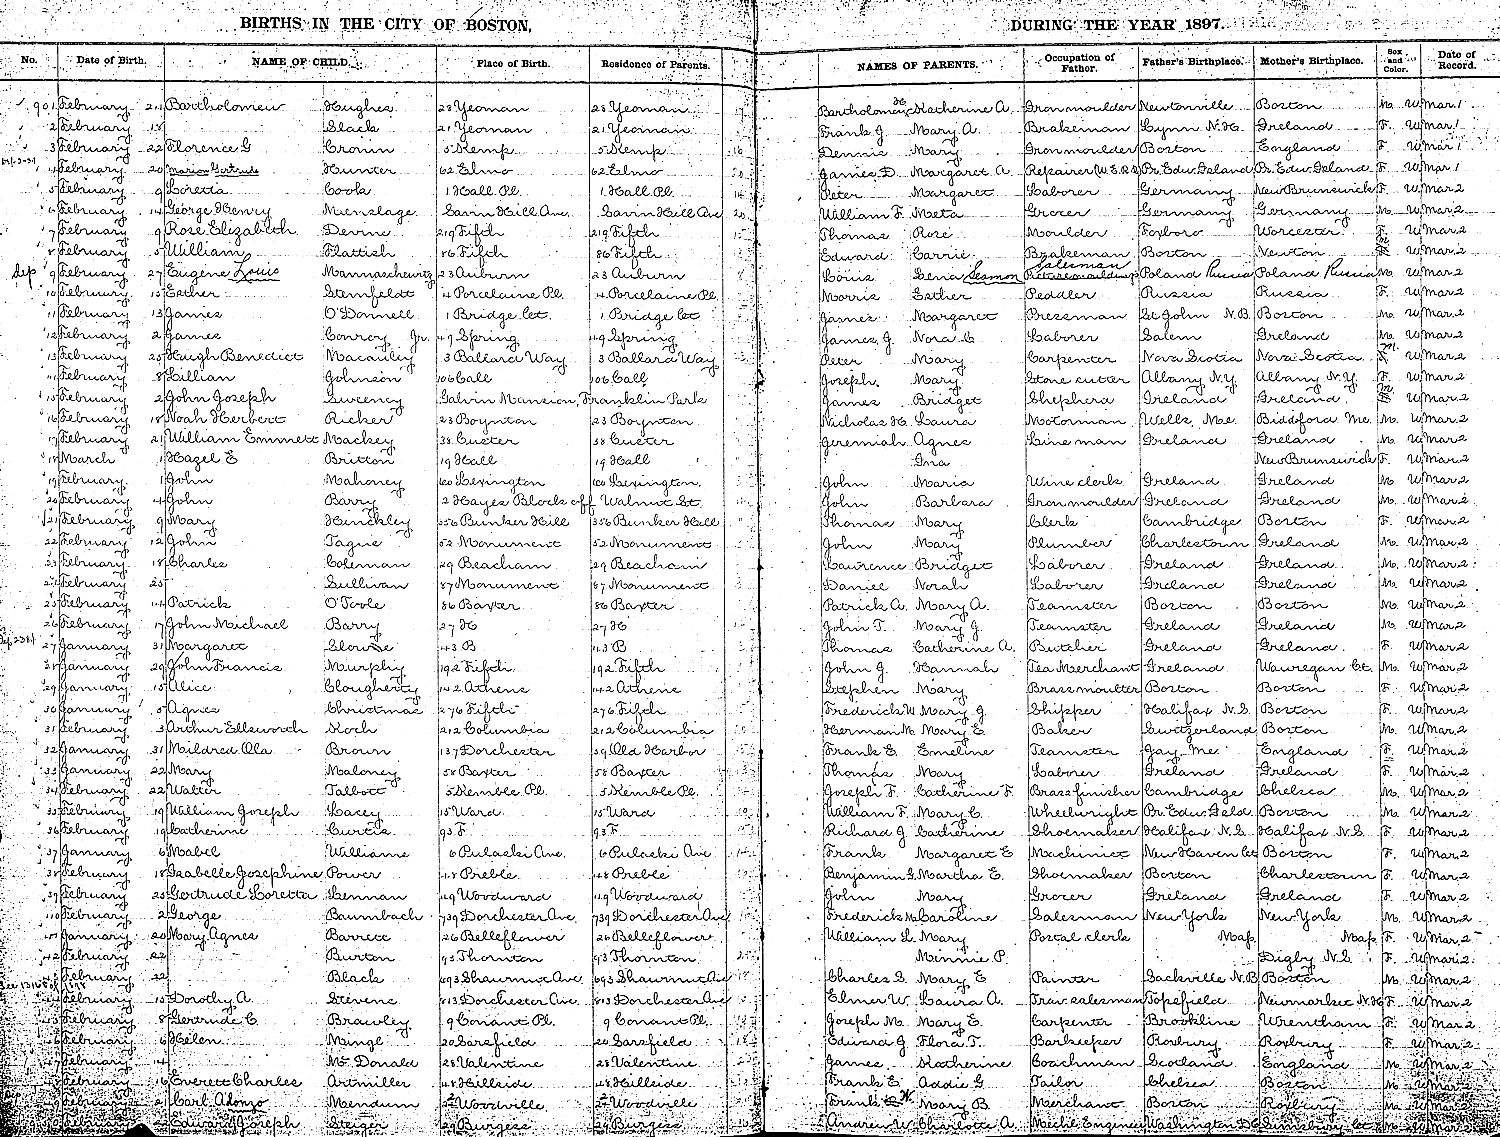 BIRTHS IN THE CITY OF BOSTON, DURING THE YEAR 1897.
No. Date of Birth. NAME OF CHILD. Place of Birth. Residence of Parents. NAMES OF PARENTS. Occupation of Father. Father's Birthplace. Mother's Birthplace. Sex and Color. Date of Record.
901 February 24 Bartholomew Hughes 28 Yeoman 28 Yeoman Bartholomew H. Katherine A. Iron moulder Newtonville Boston M. W Mar. 1
2 February 18 Slack 21 Yeoman 21 Yeoman Frank J. Mary A. Brakeman Lynn N.H. Ireland F. W Mar. 1
3 February 22 Florence G Cronin 5 Kemp 5 Kemp Dennis Mary Iron moulder Boston England F. W Mar. 1
4 February 20 Marion Gertrude Hunter 62 Elmo 62 Elmo James D. Margaret A. Repairer (W.E.R.R.) Pr. Edw. Island Pr. Edw. Island F. W Mar. 1
5 February 9 Loretta Coola 1 Hall Pl. 1 Hall Pl. Peter Margaret Laborer Germany New Brunswick F. W Mar. 2
6 February 14 George Henry Menslage Savin Hill Ave. Savin Hill Ave William F. Meta Grocer Germany Germany M. W Mar. 2
7 February 9 Rose Elizabeth Devine 219 Fifth 219 Fifth Thomas Rose Moulder Foxboro Worcester F. W Mar. 2
8 February 5 William Flattish 86 Fifth 86 Fifth Edward Carrie Brakeman Boston Newton M. W Mar. 2
Dep 9 February 27 Eugene Louis Mannascheurtz 23 Auburn 23 Auburn Louis Lena Sesmon Salesman Poland Russia Poland Russia M. W Mar. 2
10 February 15 Esther Sternfeldt 4 Porcelaine Pl. 4 Porcelaine Pl. Morris Esther Peddler Russia Russia F. W Mar. 2
11 February 13 James O'Donnell 1 Bridge Ct. 1 Bridge Ct. James Margaret Pressman St. John N.B. Boston M. W Mar. 2
12 February 2 James Conroy Jr. 49 Spring 49 Spring James J. Nora C Laborer Salem Ireland M. W Mar. 2
13 February 25 Hugh Benedict Macauley 3 Ballard Way 3 Ballard Way Peter Mary Carpenter Nova Scotia Nova Scotia M. W Mar. 2
14 February 8 Lillian Johnson 106 Call 106 Call Joseph Mary Stone cutter Albany N.Y. Albany N.Y. F. W Mar. 2
15 February 2 John Joseph Sweeney Galvin Mansion, Franklin Park James Bridget Shepherd Ireland Ireland M. W Mar. 2
16 February 18 Noah Herbert Ricker 23 Boynton 23 Boynton Nicholas H. Laura Motorman Wells, Me. Biddeford Me. M. W Mar. 2
17 February 21 William Emmett Mackey 38 Custer 38 Custer Jeremiah Agnes Line man Ireland Ireland M. W Mar. 2
18 March 1 Hazel E Britton 19 Hall 19 Hall Ina New Brunswick F. W Mar. 2
19 February 1 John Mahoney 100 Lexington 100 Lexington John Maria Wine clerk Ireland Ireland M. W Mar. 2
20 February 4 John Barry 2 Hayes Block off Walnut St. John Barbara Iron moulder Ireland Ireland M. W Mar. 2
21 February 9 Mary Hinckley 356 Bunker Hill 356 Bunker Hill Thomas Mary Clerk Cambridge Boston F. W Mar. 2
22 February 12 John Tague 52 Monument 52 Monument John Mary Plumber Charlestown Ireland M. W Mar. 2
23 February 18 Charles Coleman 29 Beacham 29 Beacham Lawrence Bridget Laborer Ireland Ireland M. W Mar. 2
24 February 25 Sullivan 87 Monument 87 Monument Daniel Norah Laborer Ireland Ireland M. W Mar. 2
25 February 14 Patrick O'Toole 86 Baxter 86 Baxter Patrick A. Mary A. Teamster Boston Boston M. W Mar. 2
26 February 17 John Michael Barry 27 H 27 H John T. Mary J. Teamster Ireland Ireland M. W Mar. 2
27 January 31 Margaret 43 B 43 B Thomas Catherine A. Butcher Ireland Ireland F. W Mar. 2
28 January 29 John Francis Murphy 192 Fifth 192 Fifth John J. Hannah Tea Merchant Ireland Wauregan Ct. M. W Mar. 2
29 January 15 Alice Clougherty 142 Athens 142 Athens Stephen Mary Brass moulter Boston Boston F. W Mar. 2
30 January 5 Agnes Christmas 276 Fifth 276 Fifth Frederick W. Mary J. Shipper Halifax N.S. Boston F. W Mar. 2
31 February 3 Arthur Ellsworth Koch 212 Columbia 212 Columbia Herman M. Mary E. Baker Switzerland Boston M. W Mar. 2
32 January 31 Mildred Ola Brown 137 Dorchester 39 Old Harbor Frank E. Emeline Teamster Jay, Me. England F. W Mar. 2
33 January 22 Mary Maloney 58 Baxter 58 Baxter Thomas Mary Laborer Ireland Ireland F. W Mar. 2
34 February 22 Walter Talbott 5 Kemble Pl. 5 Kemble Pl. Joseph F. Catherine F. Brass finisher Cambridge Chelsea M. W Mar. 2
35 February 19 William Joseph Lacey 15 Ward 15 Ward William F. Mary C. Wheelwright Pr. Edw. Isld. Boston M. W Mar. 2
36 February 19 Catherine Curtis 93 F 93 F Richard J. Catherine Shoemaker Halifax N.S. Halifax N.S. F. W Mar. 2
37 January 6 Mabel Williams 6 Pulaski Ave. 6 Pulaski Ave. Frank Margaret E Machinist New Haven Ct. Boston F. W Mar. 2
38 February 18 Isabelle Josephine Power 48 Preble 48 Preble Benjamin G. Martha E. Shoemaker Boston Charlestown F. W Mar. 2
39 February 25 Gertrude Loretta Lennan 49 Woodward 49 Woodward John Mary Grocer Ireland Ireland F. W Mar. 2
40 February 2 George Baumbach 739 Dorchester Ave. 739 Dorchester Ave Frederick M. Caroline Salesman New York New York M. W Mar. 2
41 January 20 Mary Agnes Barrett 26 Belleflower 26 Belleflower William L. Mary Postal clerk Mass. Mass. F. W Mar. 2
42 February 22 Burton 93 Thornton 93 Thornton Minnie P. Digby N.S. F. W Mar. 2
43 February 22 Black 693 Shawmut Ave. 693 Shawmut Ave Charles S. Mary E Painter Sackville N.B. Boston M. W Mar. 2
February 15 Dorothy A. Stevens 813 Dorchester Ave. 813 Dorchester Ave Elmer W. Laura A. Trav. salesman Topsfield Newmarket N.H. F. W Mar. 2
February 8 Gertrude C. Brawley 9 Conant Pl. 9 Conant Pl. Joseph M. Mary E. Carpenter Brookline Wrentham F. W Mar. 2
February 6 Helen Minge 20 Sarsfield 20 Sarsfield Edward J Flora T. Barkeeper Roxbury Roxbury F. W Mar. 2
February 14 McDonald 28 Valentine 28 Valentine James Katherine Coachman Scotland England M. W Mar. 2
February 16 Everett Charles Artmiller 48 Hillside 48 Hillside Frank E. Addie G. Tailor Chelsea Boston M. W Mar. 2
February Carl Alonzo Mendum Woodville Woodville Frank W. Mary B. Merchant Boston Roxbury M. W Mar. 2
February 22 Edward Joseph Steiger 29 Burgess 29 Burgess Andrew W. Charlotte A. Washington D.C.